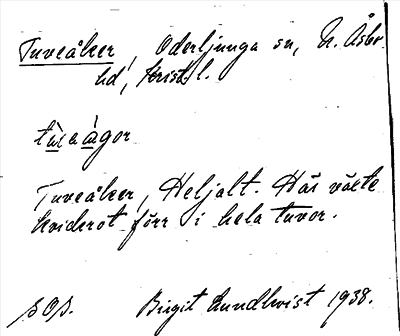 Tuveåker, Oderljunga sn, N. Åsbo
hd, Krist. l.
Tuveåker, Heljalt. Här växte
kvickrot förr i hela tuvor.
Birgit Lundkvist 1938.